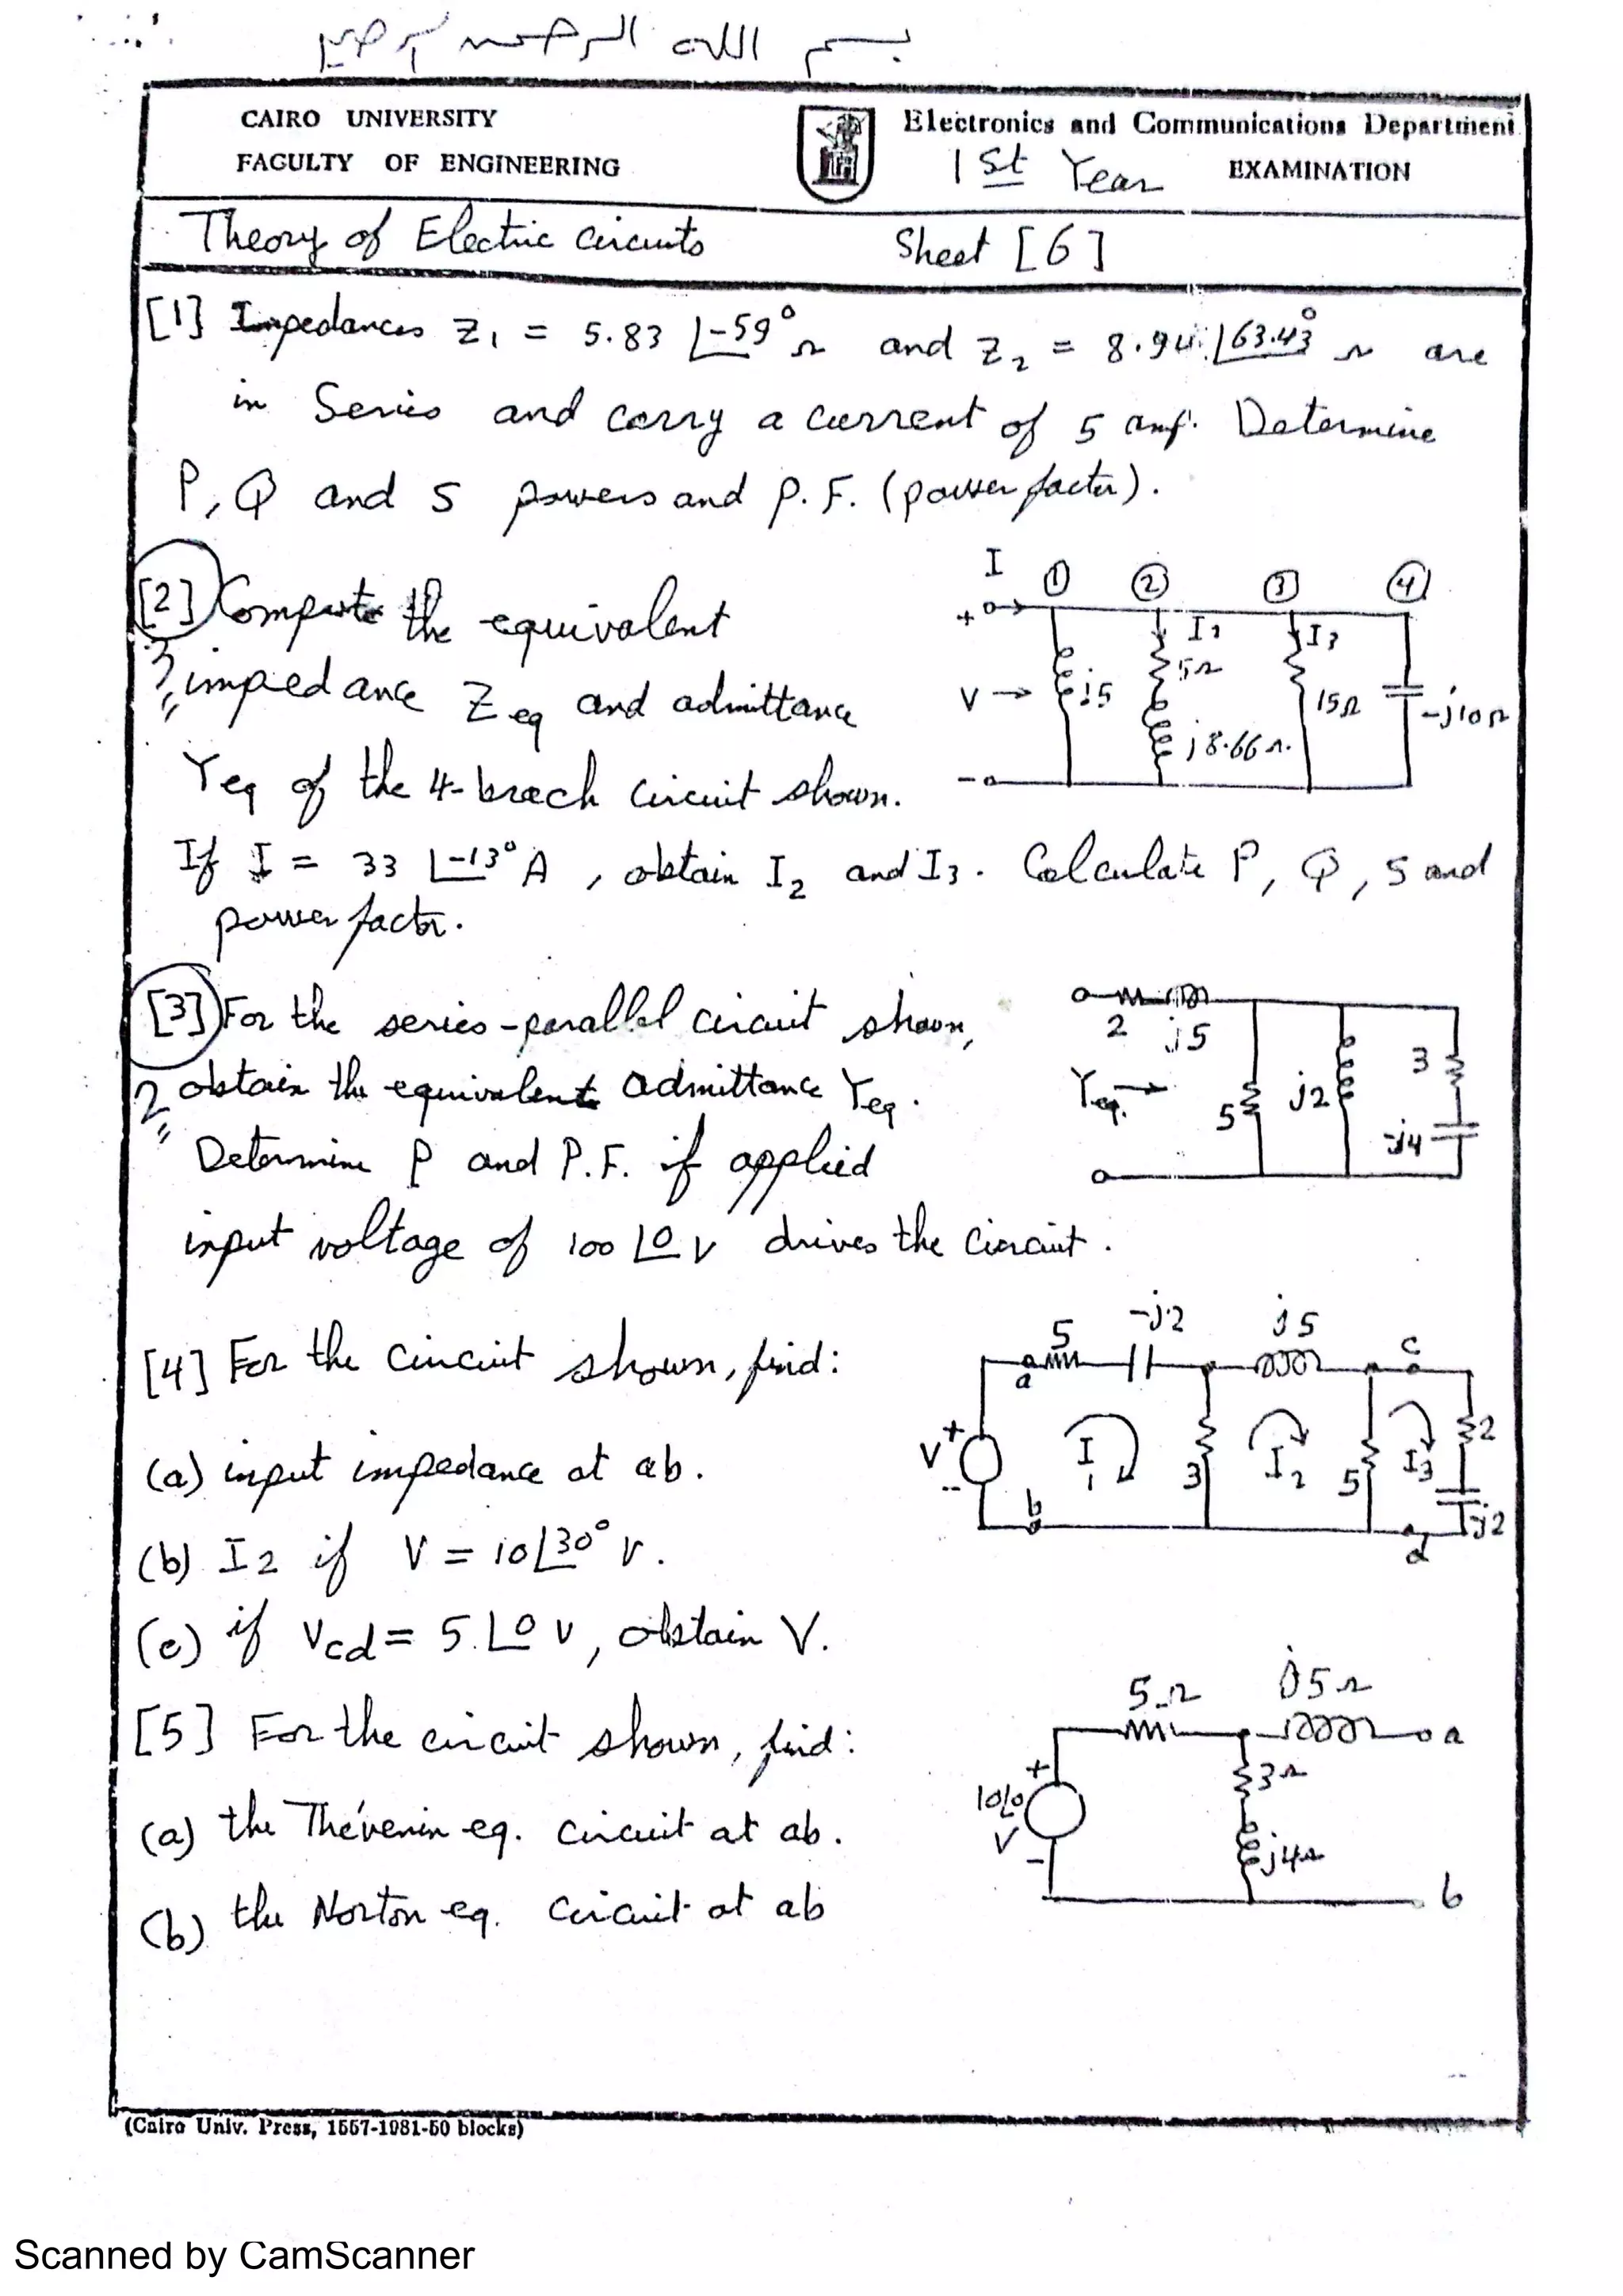 بسم الله الرحمن الرحيم
CAIRO UNIVERSITY
FACULTY OF ENGINEERING
Electronics and Communications Department
1st Year EXAMINATION
Theory of Electric circuits Sheet [6]
[1] Impedances Z1 = 5.83 ∠-59° Ω and Z2 = 8.94 ∠63.43° Ω are
in Series and carry a current of 5 amp. Determine
P, Q and S powers and P.F. (power factor).
[2] Compute the equivalent
impedance Zeq and admittance
Yeq of the 4-brach circuit shown.
If I = 33 ∠-13° A, obtain I2 and I3. Calculate P, Q, S and
power factor.
I 1 2 3 4
+ I2 I3
V → j5 5Ω 15Ω -j10Ω
j8.66Ω
-
[3] For the series-parallel circuit shown,
2 obtain the equivalent admittance Yeq.
Determine P and P.F. if applied
input voltage of 100 ∠0 V drives the circuit.
2 j5
Yeq. → 5 j2 3
-j4
[4] For the circuit shown, find:
(a) input impedance at ab.
(b) I2 if V = 10∠30° V.
(c) if Vcd = 5 ∠0 V, obtain V.
5 -j2 j5 c
a
V + - I1 3 I2 5 I3 2
b d -j2
[5] For the circuit shown, find:
(a) the Thévenin eq. circuit at ab.
(b) the Norton eq. circuit at ab
5Ω j5Ω a
+ 3Ω
10∠0 V
- j4Ω
b
(Cairo Univ. Press, 1557-1981-50 blocks)
Scanned by CamScanner